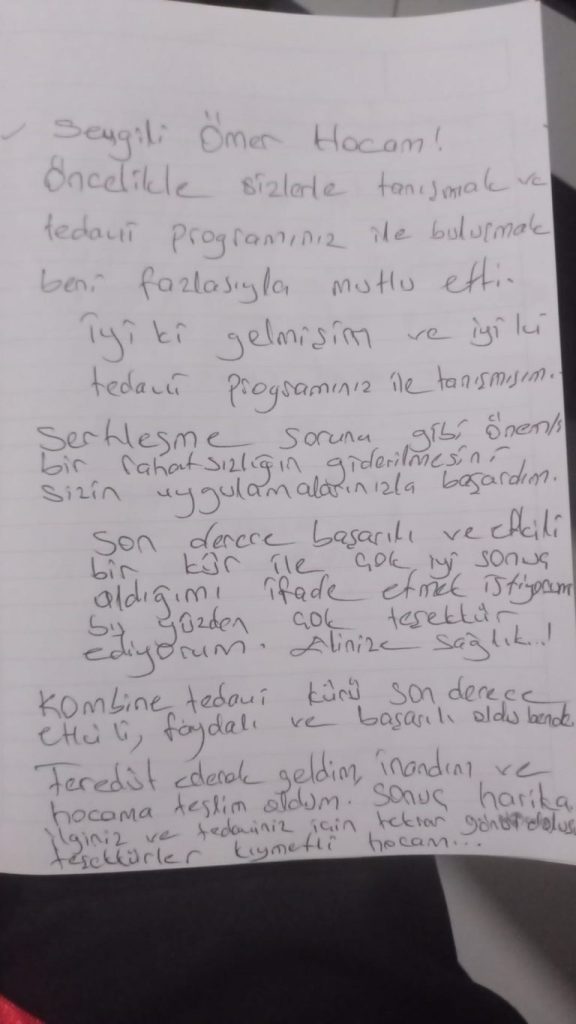 Sevgili Ömer Hocam!
Öncelikle sizlerle tanışmak ve
tedavi programınız ile buluşmak
beni fazlasıyla mutlu etti.
İyi ki gelmişim ve iyi ki
tedavi programınız ile tanışmışım.
Sertleşme soruna gibi önemli
bir rahatsızlığın giderilmesini
sizin uygulamalarınızla başardım.
Son derece başarılı ve etkili
bir kür ile çok iyi sonuç
aldığımı ifade etmek istiyorum
bu yüzden çok teşekkür
ediyorum. Elinize sağlık..!
Kombine tedavi kürü son derece
etkili, faydalı ve başarılı oldu bende.
Teredüt ederek geldim, inandım ve
hocama teslim oldum. Sonuç harika
ilginiz ve tedaviniz için tekrar gönül dolusu
teşekkürler kıymetli hocam...